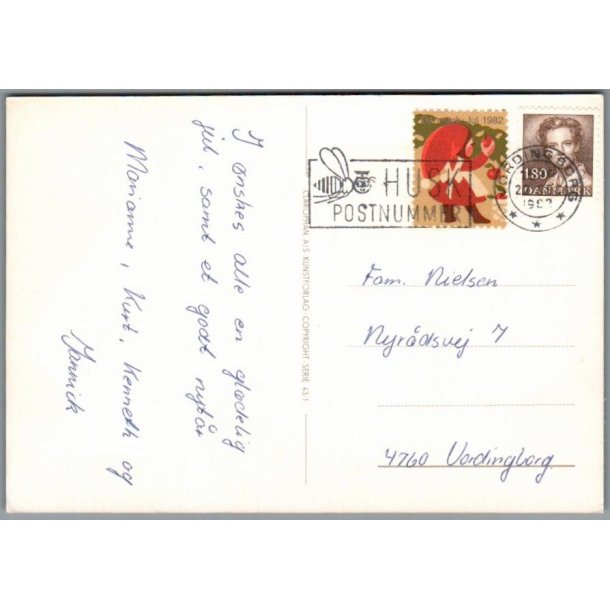 I ønskes alle en glædelig
jul, samt et godt nytår
Marianne, Kurt, Kenneth og
Jannick
CLAROPHAN A/S KUNSTFORLAG · COPYRIGHT · SERIE 43:1
jul 1982
HUSK
POSTNUMMER
VORDINGBORG
1982
180
DANMARK
Fam. Nielsen
Nyrådsvej 7
4760 Vordingborg